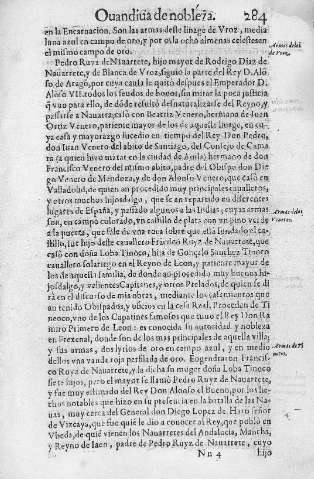 Quandiua de nobleza. 284
en la Encarnacion. Son las armas deste linage de Vroz, media
luna azul en campo de oro, y por orla ocho almenas celestes en
el mismo campo de oro.
Pedro Ruyz de Nauarrete, hijo mayor de Rodrigo Diaz de
Nauarrete, y de Blanca de Vroz, siguio la parte del Rey D. Alõ
so de Aragõ, por cuya causa le quitò despues el Emperador D.
Alonso VII. todos los feudos de honor, sin mirar la poca justicia
q̃ vuo para ello, de dõde resultò desnaturalizarse del Reyno, y
passarse a Nauarra; casò con Beatriz Venero, hermana de Iuan
Ortiz Venero, pariente mayor de los de aquella linage, en cu
ya casa y mayorazgo sucedio en tiempo del Rey Don Pedro,
don Iuan Venero del abito de Santiago, del Consejo de Camara
(a quien hizo matar en la ciudad de Auila) hermano de don
Francisco Venero del mismo abito, padre del Obispo don Die
go Venero de Mendoza, y de don Alonso Venero, que casò en
Valladolid, de quien an procedido muy principales caualleros,
y otros muchos hijosdalgo, que se an repartido en diferentes
lugares de España, y passado algunos a las Indias, cuyas armas
son, en campo colorado, vn castillo de plata con vn pino verde
a la puerta, que sale de vna roca sobre que està fundado el ca
stillo, fue hijo deste cauallero Francisco Ruyz de Nauarrete, que
casò con doña Loba Tinoco, hija de Gonçalo Sanchez Tinoco
cauallero solariego en el Reyno de Leon, y pariente mayor de
los de aquella familia, de donde an procedido muy buenos hi-
josdalgo, y valientes Capitanes, y otros Prelados, de quien se di
rà en el discurso de mis obras, mediante los casamientos que
an tenido Obispados, y oficios en la casa Real. Proceden de Ti
noco, vno de los Capitanes famosos que tuuo el Rey Don Ra
miro Primero de Leon: es conocida su autoridad y nobleza
en Frexenal, donde son de los mas principales de aquella villa,
y sus armas, dos lyrios de oro en campo azul, y en medio
dellos vna vanda roja perfilada de oro. Engendraron Francis-
co Ruyz de Nauarrete, y la dicha su muger doña Loba Tinoco
siete hijos, pero el mayor se llamò Pedro Ruyz de Nauarrete,
y fue muy estimado del Rey Don Alonso el Bueno, por los he-
chos notables que hizo en su presencia en la batalla de las Na-
uas, muy cerca del General don Diego Lopez de Haro señor
de Vizcaya, que fue quien le dio a conocer al Rey, que poblò en
Vbeda, de quiẽ vienen los Nauarretes del Andalucia, Mancha,
y Reyno de Iaen, padre de Pedro Ruyz de Nauarrete, cuyo
Nn 4 hijo